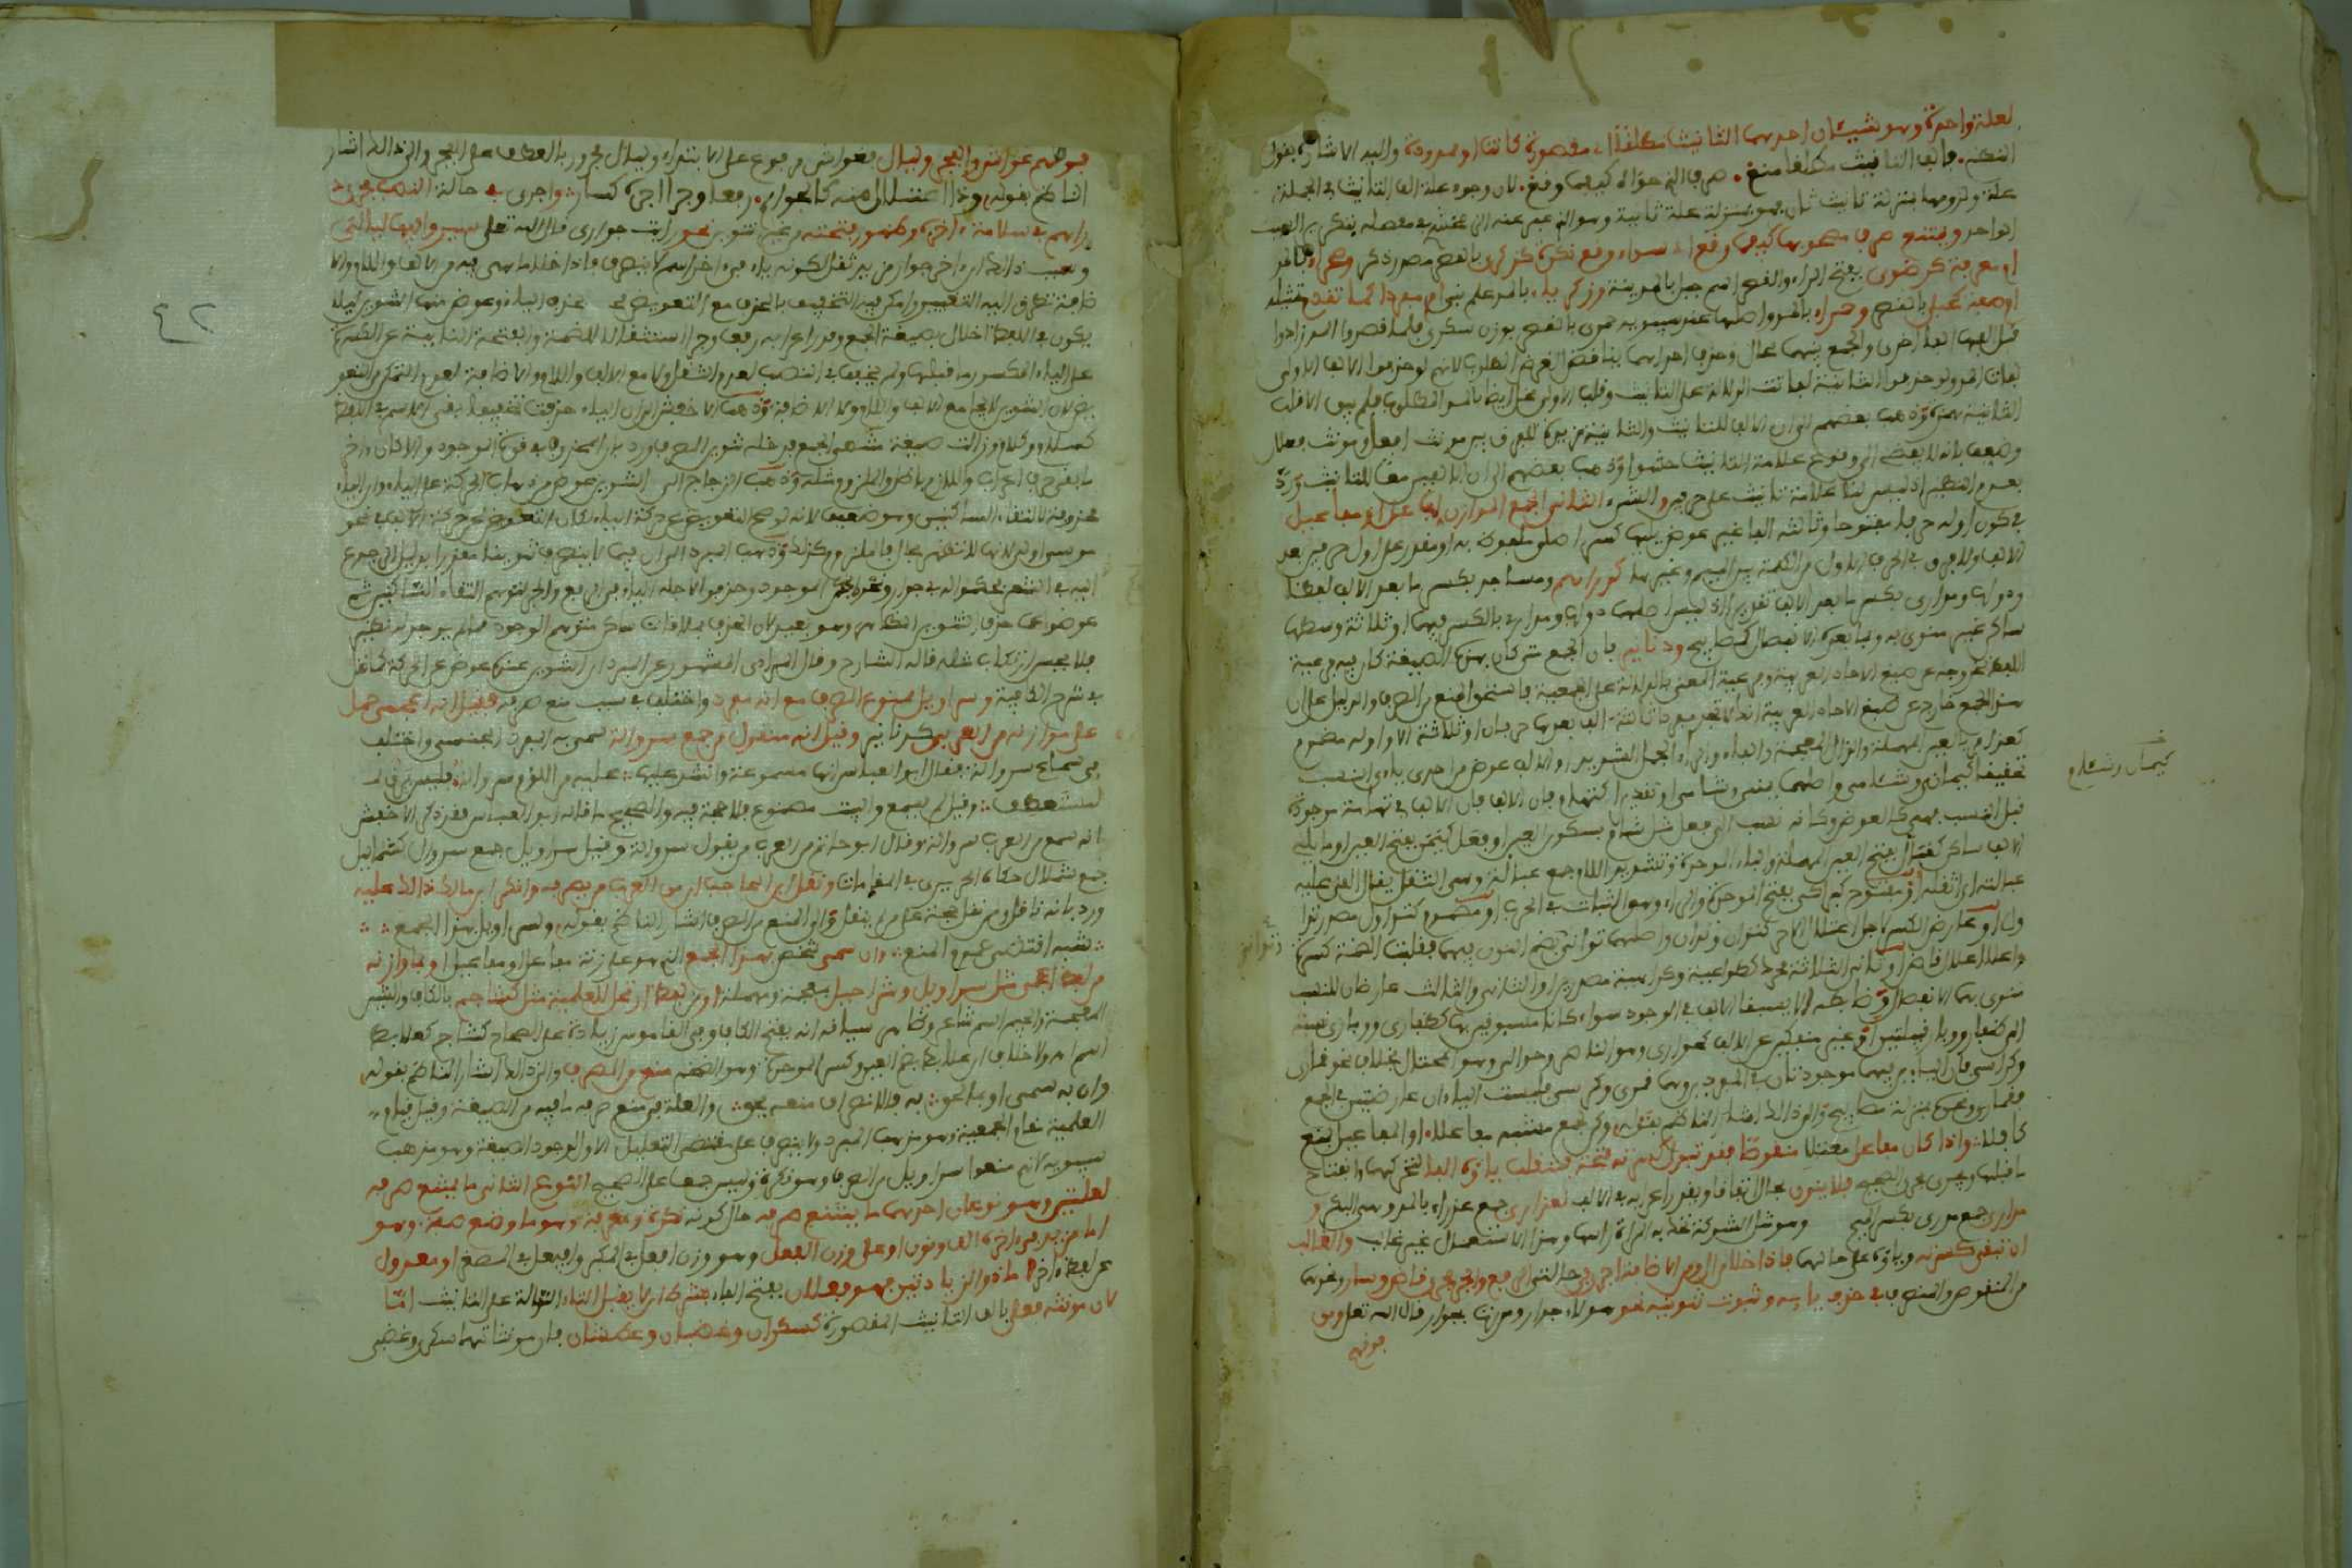 لعلة واحدة وهو شيئان احدهما التانيث مطلقا اي مقصورة كانت او ممدودة واليه الاشارة بقول
النظم فالف التانيث مطلقا منع صرف الذي حواه كيفما وقع لان وجود علة الف التانيث في الجملة
علة ولزومها بمنزلة تانيث ثان فهو بمنزلة علة ثانية
الواحد ويمتنع صرف مصحوبها كيف وقع اي سواء وقع نكرة كذكرى بالقصر مصدر ذكر وصحراء بالمد
او معرفة كرضوى بفتح الراء والقصر اسم جبل بالمدينة وزكرياء بالمد علم نبي ام مفردا كما تقدم تمثيله
او صفة كحبلى بالقصر وحمراء بالمد واصلها عند سيبويه حمرى بالقصر بوزن سكرى فلما قصدوا المد زادوا
قبل الفها الفا اخرى والجمع بينهما محال وحذف احداهما يناقض الغرض المطلوب لانهم لو حذفوا الالف الاولى
لفات المد ولو حذفوا الثانية لفاتت الدلالة على التانيث وقلب الاولى مخل ايضا بالمد المطلوب فلم يبق الا قلب
الثانية همزة وذهب بعضهم الى ان الالف للتانيث والثانية مزيدة للفرق بين مونث افعل ومونث فعلان
وضعف بانه يفضي الى وقوع علامة التانيث حشوا وذهب بعضهم الى ان الالفين معا للتانيث ورد
بعدم النظير اذ ليس لنا علامة تانيث على حرفين والشيء الثاني الجمع الموازن لمفاعل او مفاعيل
في كون اوله حرفا مفتوحا وثالثه الفا غير عوض يليها كسر اصلي ملفوظ به او مقدر على اول حرفين بعد
الالف ولا فرق في الحرف الاول من الكلمة بين الميم وغيرها كدراهم ومساجد بكسر ما بعد الالف لفظا
ودواب ومدارى بكسر ما بعد الالف تقديرا اذ ليس اصلهما دوابب ومدارى بالكسر فيهما او ثلاثة وسطها
ساكن غير منوي به وبما بعده الانفصال كمصابيح ودنانير فان الجمع متى كان بهذه الصيغة كان فيه فرعية
اللفظ بخروجه عن صيغ الاحاد العربية وفرعية المعنى بالدلالة على الجمعية فاستحق المنع من الصرف والدليل على ان
هذا الجمع خارج عن صيغ الاحاد العربية انك لا تجد مفردا ثالثه الف بعدها حرفان او ثلاثة الا واوله مضموم
كعذافر بالعين المهملة والذال المعجمة والفاء والراء الجمل الشديد او الالف عوض من احدى ياءي النسب
تحقيقا كيمان وشئام واصلهما يمني وشامي او تقديرا كتهام
قبل النسب فهي كالعوض وكانه نسب الى فعل مثل شام بسكون العين او فعل كيمن بفتح العين او ما يلي
الالف ساكن كعبال بفتح العين المهملة والباء الموحدة وتشديد اللام جمع عبالة وهي الثقل يقال القى عليه
عبالته اي ثقله او مفتوح كبراكا بفتح الموحدة والراء وهو الثبات في الحرب او مضموم كتداول مصدر تداول
او عارض الكسر لاجل اعتلال الاخر كتوان وتدان واصلهما تواني بضم النون فيهما فقلبت الضمة كسرة
واعل اعلال قاض او ثاني الثلاثة محرك كطواعية وكراهية مصدرين او الثاني والثالث عارضان للنسب
منوي بهما الانفصال وضابطه الا يسبقا الالف في الوجود سواء كانا مسبوقين بها كظفاري ورباحي نسبة
الى ظفار ورباح قبيلتين او غير منفكين عن الالف كحواري وهو الناصر وحوالي وهو المحتال بخلاف نحو قماري
وكراسي فان الياء فيهما موجودتان في المفرد وهما قمري وكرسي فليست الياءان عارضتين في الجمع
فقماري وبخاتي بمنزلة مصابيح والى ذلك اشار الناظم بقوله وكن لجمع مشبه مفاعلا او المفاعيل بمنع
كافلا واذا كان مفاعل معتلا منقوصا فقد تبدل كسرته فتحة فتنقلب ياؤه الفا لتحركها وانفتاح
ما قبلها ويجري مجرى الصحيح فلا ينون بحال اتفاقا ويقدر اعرابه في الالف كعذارى جمع عذراء بالمد وهي البكر و
مدارى جمع مدرى بكسر الميم وهو مثل الشوكة تحك به المراة راسها وهذا الاستعمال غير غالب والغالب
ان تبقى كسرته وياؤه على حالهما فاذا خلا من ال ومن الاضافة اجري في حالتي الرفع والجر مجرى قاض وسار ونحوهما
من المنقوص المنصرف في حذف يائه وثبوت تنوينه نحو هولاء جوار ومررت بجوار قال الله تعلى ومن
فوقهم
كيمان وشئام
٤٢
فوقهم غواش والفجر وليال فغواش مرفوع على الابتداء وليال مجرور بالعطف على الفجر والى ذلك اشار
الناظم بقوله وذا اعتلال منه كالجواري رفعا وجرا اجره كساري واجري في حالة النصب مجرى
دراهم في سلامة اخره وظهور فتحته من غير تنوين نحو رايت جواري قال الله تعلى سيروا فيها ليالي
وسبب ذلك ان اخر جوار مزيد ثقل لكونه ياء في اخر اسم لا ينصرف فاذا خلا ما هي فيه من الالف واللام والا
ضافة تطرق اليه التغيير وامكن فيه التخفيف بالحذف مع التعويض فخفف بحذف الياء وعوض منها التنوين ليلا
يكون في اللفظ اخلال بصيغة الجمع وقدر اعرابه رفعا وجرا استثقالا للضمة والفتحة النائبة عن الكسرة
على الياء المكسور ما قبلها ولم يخفف في النصب لعدم الثقل ولا مع الالف واللام والاضافة لعدم التمكن من التعو
يض لان التنوين لا يجامع الالف واللام ولا الاضافة وذهب الاخفش الى ان الياء حذفت تخفيفا فبقي الاسم في اللفظ
كسلام وكلام وزالت صيغة منتهى الجمع فدخله تنوين الصرف ورد بان المحذوف في قوة الموجود والا كان اخر
ما بقي حرف اعراب واللازم باطل والملزوم مثله وذهب الزجاج الى ان التنوين عوض من ذهاب الحركة على الياء وان الياء
محذوفة لالتقاء الساكنين وهو ضعيف لانه لو صح التعويض عن حركة الياء لكان التعويض عن حركة الالف في نحو
موسى اولى لانها لا تظهر بحال فاللازم كذلك وذهب المبرد الى ان فيما لا ينصرف تنوينا مقدرا بدليل الرجوع
اليه في الشعر فحكموا له في جوار ونحوه بحكم الموجود وحذفوا لاجله الياء في الرفع والجر لتوهم التقاء الساكنين ثم
عوضوا عما حذف التنوين الظاهر وهو بعيد لان الحذف لملاقاة ساكن متوهم الوجود مما لم يوجد له نظير
فلا يحسن ارتكاب مثله قاله الشارح وقال المرادي المشهور عن المبرد ان التنوين عنده عوض عن الحركة كما نقل
في شرح الكافية وسراويل ممنوع الصرف مع انه مفرد واختلف في سبب منع صرفه فقيل انه اعجمي حمل
على موازنه من العربي كدنانير وقيل انه منقول من جمع سروالة سمي به المفرد الجنسي واختلف
في سماع سروالة فقال ابو العباس انها مسموعة وانشد عليها عليه من اللؤم سروالة فليس يرق
لمستعطف وقيل لم يسمع والبيت مصنوع فلا حجة فيه والصحيح ما قاله ابو العباس فقد ذكر الاخفش
انه سمع من العرب سروالة وقال ابو حاتم من العرب من يقول سروال وقيل سراويل جمع سروال كشماليل
جمع شملال حكاه الحريري في المقامات ونقل ابن الحاجب ان من العرب من يصرفه وانكر ابن مالك ذلك عليه
ورد بانه ناقل ومن نقل حجة على من لم ينقل والى المنع من الصرف اشار الناظم بقوله ولسراويل بهذا الجمع
شبه اقتضى عموم المنع وان سمي شخص بهذا الجمع الذي هو على زنة مفاعل او مفاعيل او بما وازنه
من لفظ اعجمي مثل سراويل وشراحيل بمعجمة ومهملة او من لفظ ارتجل للعلمية مثل كشاجم بالكاف والشين
المعجمة والجيم اسم شاعر وظاهر سياقه انه بفتح الكاف وفي القاموس زيادة على الصحاح كشاجم كعلابط
اسم اه ولا خلاف ان علابط بضم العين وكسر الموحدة وهو الضخم منع من الصرف والى ذلك اشار الناظم بقوله
وان به سمي او بما لحق به فالانصراف منعه يحق والعلة في منع صرفه ما فيه من الصيغة وقيل قيام
العلمية مقام الجمعية وهو مذهب المبرد ولا ينصرف على مقتضى التعليل الاول لوجود الصيغة وهو مذهب
سيبويه لانهم منعوا سراويل من الصرف وهو نكرة وليس جمعا على الصحيح النوع الثاني ما يمنع صرفه
لعلتين وهو نوعان احدهما ما يمتنع صرفه حال كونه نكرة ومعرفة وهو ما وضع صفة وهو
اما مزيد في اخره الف ونون او على وزن الفعل وهو وزن افعل في المكبر وافيعل في المصغر او معدول
عن لفظ اخر اما ذو الزيادتين فهو فعلان بفتح الفاء بشرط ان لا يقبل التاء الدالة على التانيث اما
لان مونثه فعلى بالف التانيث المقصورة كسكران وغضبان وعطشان فان مونثاتها سكرى وغضبى